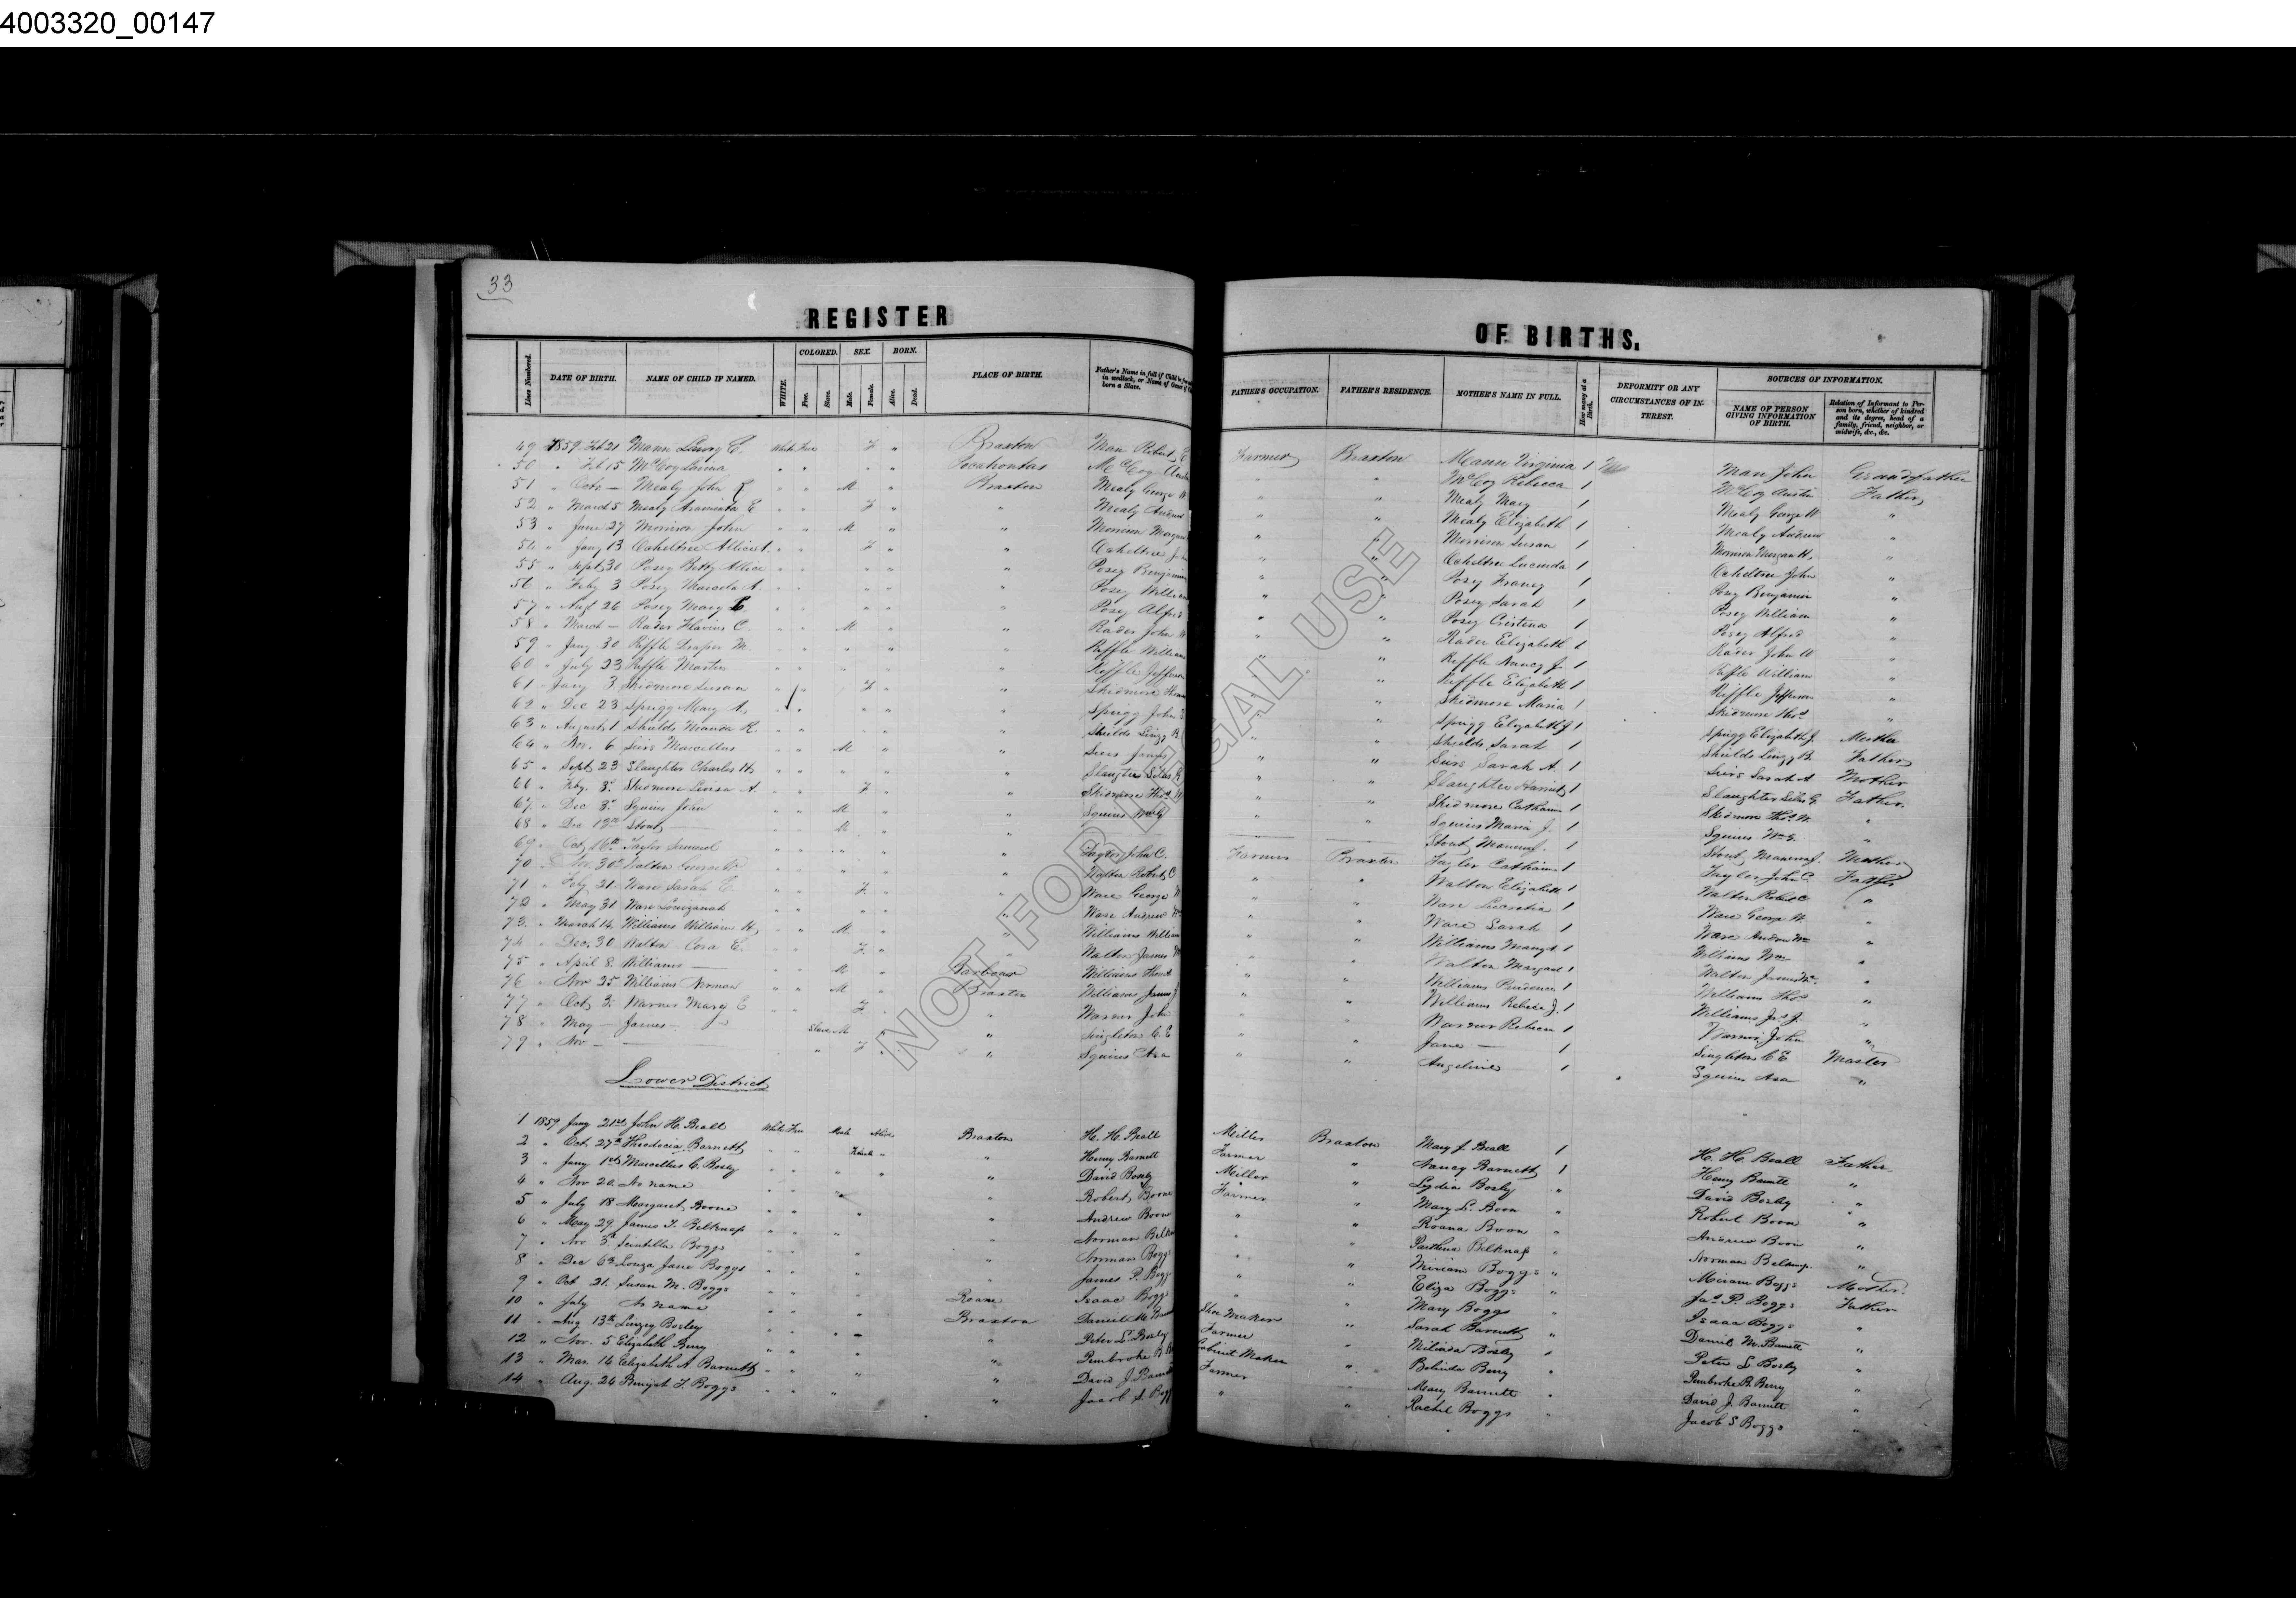 4003320_00147
33
REGISTER OF BIRTHS.
Lines Numbered. DATE OF BIRTH. NAME OF CHILD IF NAMED. WHITE. COLORED. Free. Slave. SEX. Male. Female. BORN. Alive. Dead. PLACE OF BIRTH. Father's Name in full if Child be free born a Slave. FATHER'S OCCUPATION. FATHER'S RESIDENCE. MOTHER'S NAME IN FULL. How many at a Birth. DEFORMITY OR ANY CIRCUMSTANCES OF INTEREST. SOURCES OF INFORMATION. NAME OF PERSON GIVING INFORMATION OF BIRTH. Relation of Informant to Person born, whether of kindred and its degree, head of a family, friend, neighbor, or midwife, &c., &c.
49 1859 Feb 21 Mann C. White Free F " Braxton Man Robert Farmer Braxton Mann Virginia 1 Man John Grandfather
50 " Feb 15 McCoy " " " " Pocahontas McCoy " " McCoy Rebecca 1 McCoy Austin Father
51 " Oct — Mealy John " " M " Braxton Mealy George W " " Mealy Mary 1 Mealy George W "
52 " March 5 Mealy Araminta E " " F " " Mealy Andrew " " Mealy Elizabeth 1 Mealy Andrew "
53 " June 27 Morrison John " " M " " Morrison Morgan " " Morrison Susan 1 Morrison Morgan H. "
54 " Jany 13 Ocheltree " " F " " Ocheltree " " Ocheltree Lucinda 1 Ocheltree John "
55 " Sept 30 Posey Betty Allice " " " " " Posey Benjamin " " Posey Francy 1 Posey Benjamin "
56 " Feby 3 Posey A. " " " " " Posey William " " Posey Sarah 1 Posey William "
57 " Augt 26 Posey Mary " " " " " Posey Alfred " " Posey Cristena 1 Posey Alfred "
58 " March — Rader Flavius C. " " M " " Rader John W " " Rader Elizabeth 1 Rader John W "
59 " Jany 30 Riffle Draper M. " " " " " Riffle William " " Riffle Nancy J 1 Riffle William "
60 " July 23 Riffle Martin " " " " " Riffle Jefferson " " Riffle Elizabeth 1 Riffle Jefferson "
61 " Jany 3 Skidmore Susan " " F " " Skidmore " " Skidmore Maria 1 Skidmore Thos "
62 " Dec 23 Sprigg Mary A. " " " " " Sprigg John " " Sprigg Elizabeth J 1 Sprigg Elizabeth J. Mother
63 " August 1 Shields Manda R. " " " " " Shields B. " " Shields Sarah 1 Shields B. Father
64 " Nov. 6 Sears Marcellus " " M " " James " " Sarah A. 1 Sarah A Mother
65 " Sept 23 Slaughter Charles H. " " " " " Slaughter Silas G " " Slaughter Harriet 1 Slaughter Silas G. Father.
66 " Feby. 8 Skidmore A " " F " " Skidmore Thos " " Skidmore Catharine 1 Skidmore Thos. "
67 " Dec 3 Squires John " " M " " Squires Wm G " " Squires Maria J. 1 Squires Wm G. "
68 " Dec 13th Stout — " M " " Stout 1 Stout Mother
69 " Oct 16th Taylor Samuel " " " " " Taylor John C. Farmer Braxton Taylor Catharine 1 Taylor John C. Father
70 " Nov. 30 Walton " " " " " Walton Robert C " " Walton Elizabeth 1 Walton Robert C "
71 " Feby 21 Ware Sarah E. " " F " " Ware George " " Ware Lucretia 1 Ware George W. "
72 " May 31 Ware " " " " " Ware Andrew " " Ware Sarah 1 Ware Andrew "
73 " March 14 Williams William H. " " M " " Williams William " " Williams 1 Williams Wm "
74 " Dec. 30 Walton Cora E. " " F " " Walton James " " Walton Margaret 1 Walton James "
75 " April 8 Williams — " " M " Barbour Williams Thos " " Williams Prudence 1 Williams Thos "
76 " Nov 25 Williams Norman " " M " Braxton Williams James J " " Williams Rebecca J. 1 Williams J. "
77 " Oct 3 Warner Mary E " " F " " Warner John " " Warner Rebecca 1 Warner John "
78 " May — James — Slave M " " Singleton C. E " " Jane — 1 Singleton C E Master
79 " Nov — — " F " " Squires Asa " " Angeline 1 Squires Asa "
Lower District
1 1859 Jany 21st John H. Beall White Free Male Alive Braxton H. H. Beall Miller Braxton Mary J. Beall 1 H. H. Beall Father
2 " Oct. 27th Theodocia Barnett " " Female " " Henry Barnett Farmer " Nancy Barnett 1 Henry Barnett "
3 " Jany 1st Marcellus C. Bosley " " " " " David Bosley Miller " Lydia Bosley " David Bosley "
4 " Nov 20. No name " " " " Robert Boone Farmer " Mary L. Boon " Robert Boon "
5 " July 18 Margaret Boone " " " " Andrew Boon " " Roana Boon " Andrew Boon "
6 " May 29. James T. Belknap " " " " Norman " " Parthena Belknap " Norman Belknap. "
7 " Nov 3d Scintilla Boggs " " " " Norman Boggs " " Miriam Boggs " Miriam Boggs Mother.
8 " Dec 6th Louza Jane Boggs " " " " James P. Boggs " " Eliza Boggs " Jas P. Boggs Father
9 " Oct 21. Susan M. Boggs " " " Roane Isaac Boggs " " Mary Boggs " Isaac Boggs "
10 " July No name " " " Braxton Daniel M. Shoe Maker " Sarah Barnett " Daniel M. Barnett "
11 " Aug 13th Bosley " " " " Peter L. Bosley Farmer " Bosley " Peter L Bosley "
12 " Nov. 5 Elizabeth Berry " " " " Pembroke B. Cabinet Maker " Belinda Berry " Pembroke B. Berry "
13 " Mar. 14 Elizabeth A. Barnett " " " " David J. Barnett Farmer " Mary Barnett " David J. Barnett "
14 " Aug. 24 T. Boggs " " " " Jacob S. Boggs " " Rachel Boggs " Jacob S Boggs "
NOT FOR LEGAL USE